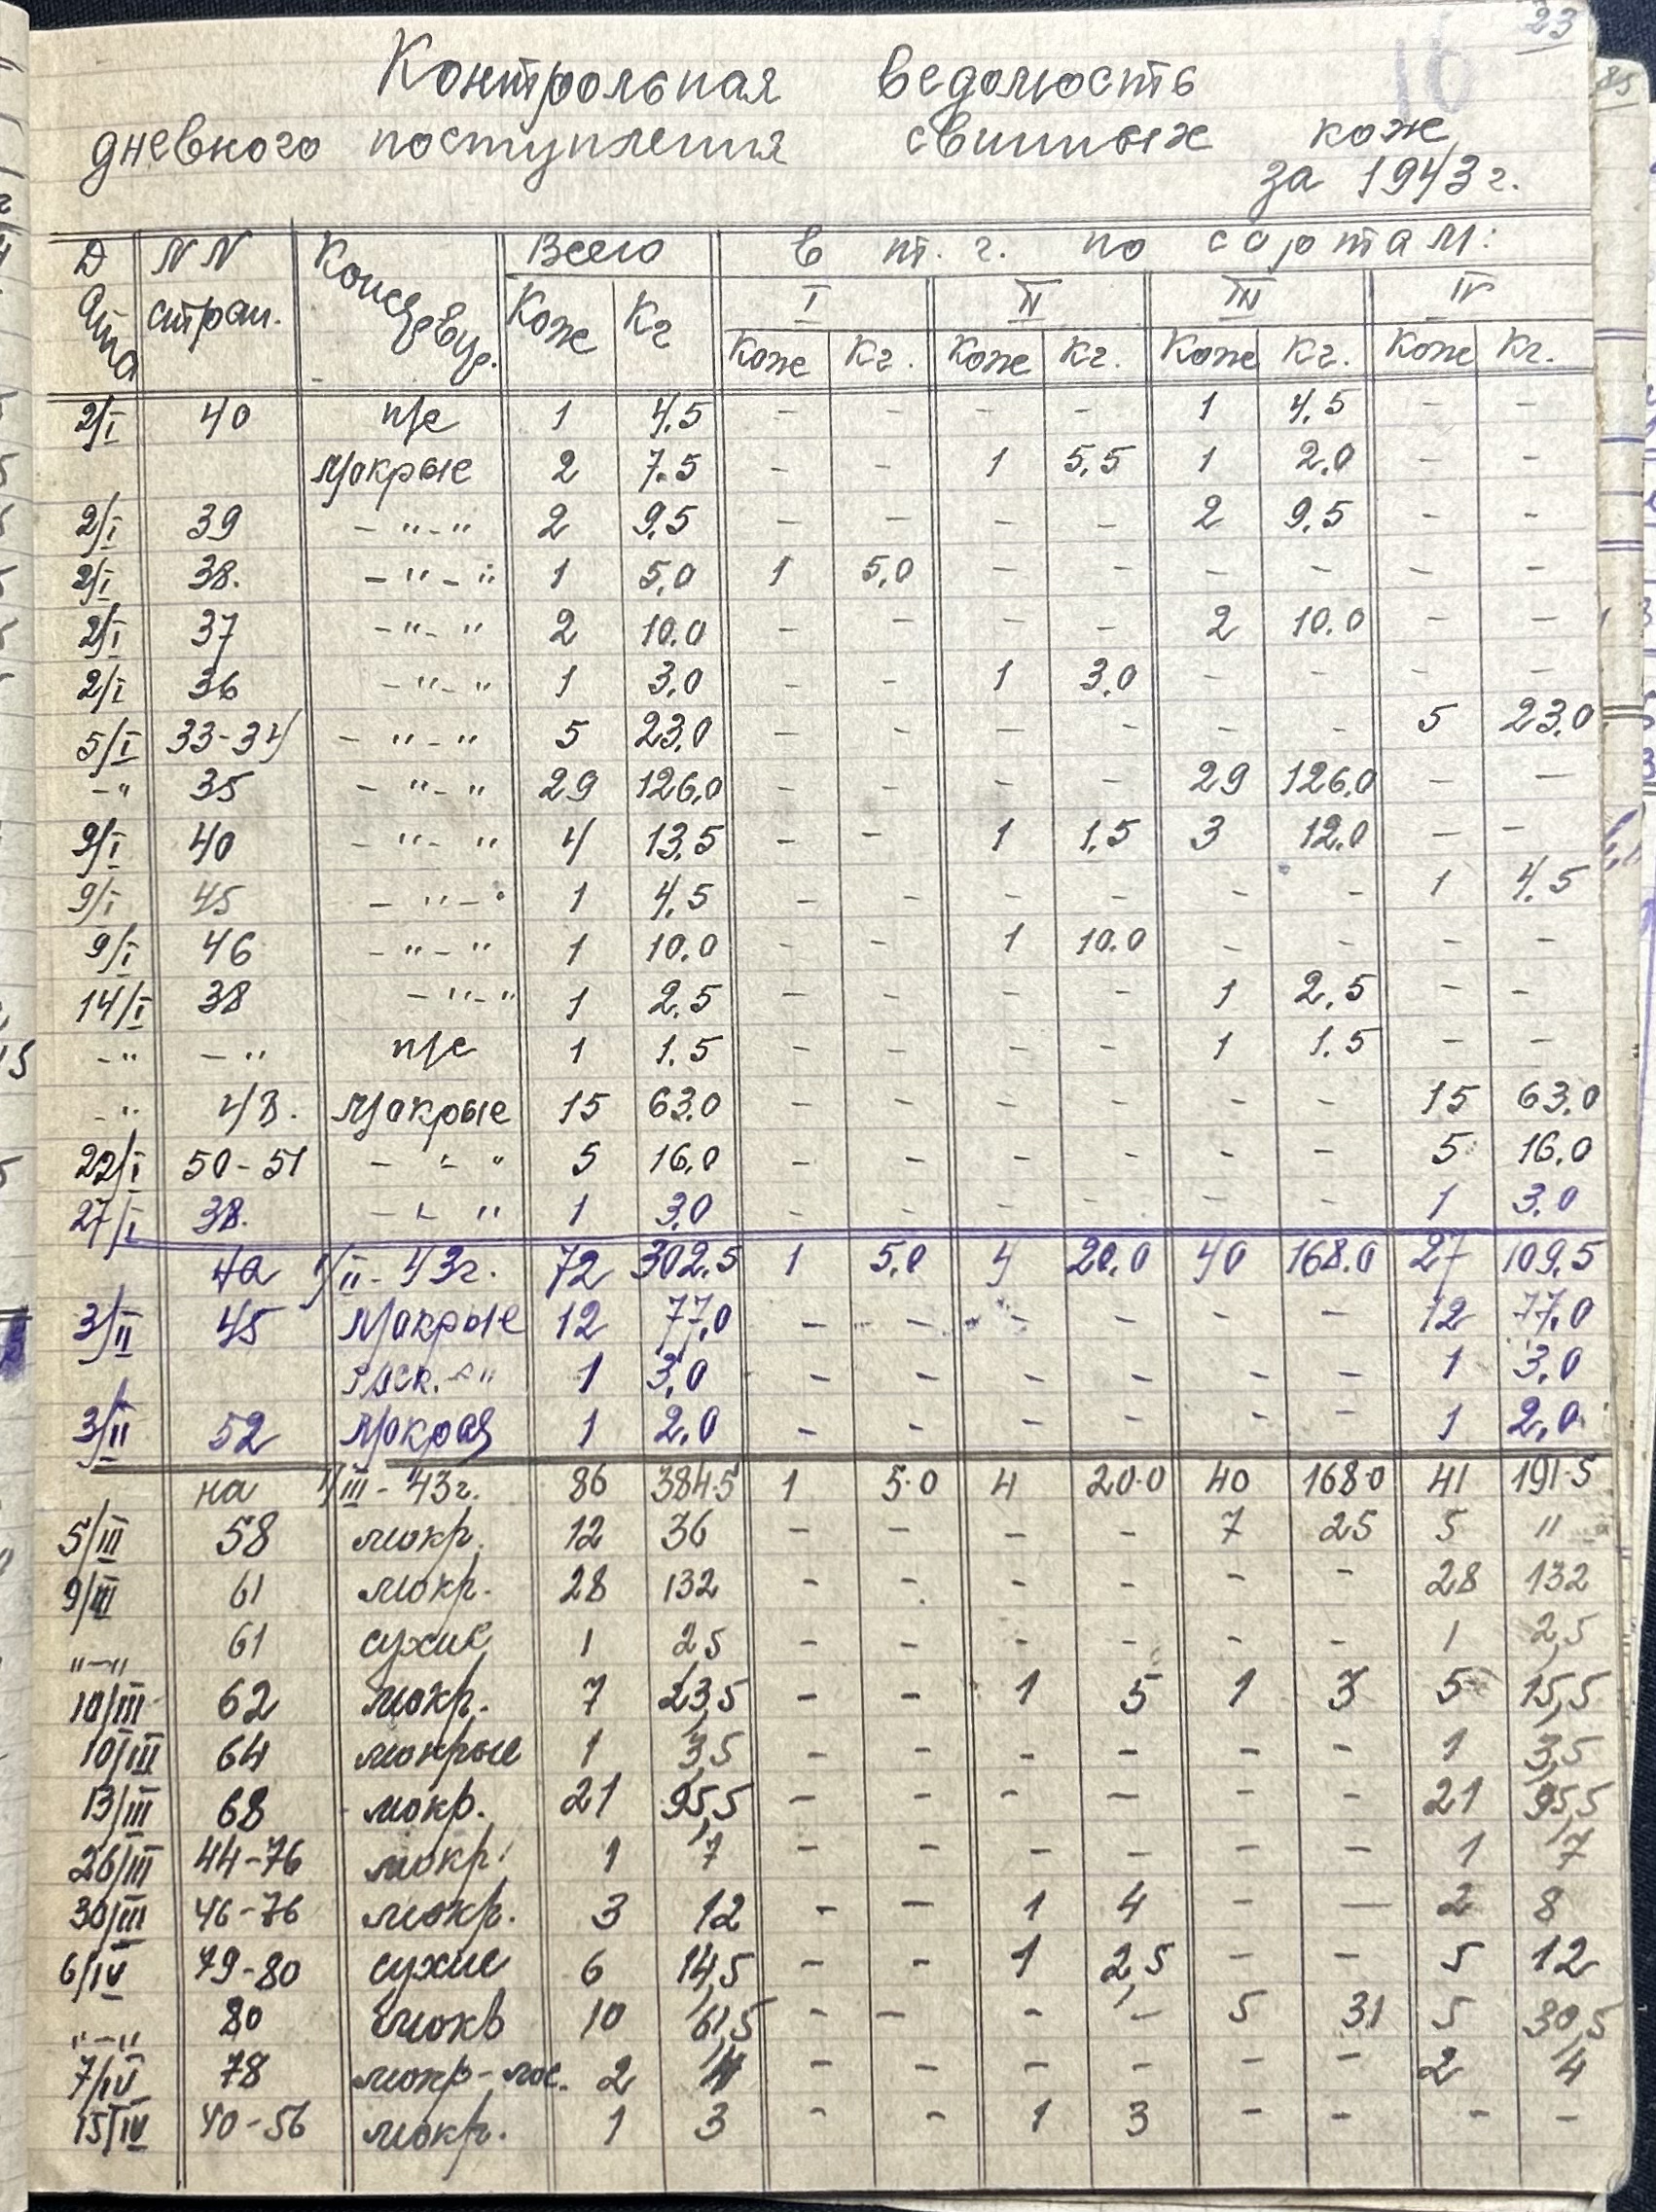 23
16
Контрольная ведомость
дневного поступления свиных кож
за 1943 г.
Дата NN стран. Консерв. Всего в т. ч. по сортам:
I II III IV
Кож Кг Кож Кг. Кож Кг. Кож Кг. Кож Кг.
2/I 40 п/с 1 4,5 - - - - 1 4,5 - -
Мокрые 2 7.5 - - 1 5,5 1 2,0 - -
2/I 39 - " - " 2 9,5 - - - - 2 9,5 - -
2/I 38. - " - " 1 5,0 1 5,0 - - - - - -
2/I 37 - " - " 2 10.0 - - - - 2 10.0 - -
2/I 36 - " - " 1 3,0 - - 1 3,0 - - - -
5/I 33-34 - " - " 5 23,0 - - - - - - 5 23,0
- " 35 - " - " 29 126,0 - - - - 29 126,0 - -
9/I 40 - " - " 4 13,5 - - 1 1,5 3 12,0 - -
9/I 45 - " - " 1 4,5 - - - - - - 1 4,5
9/I 46 - " - " 1 10.0 - - 1 10.0 - - - -
14/I 38 - " - " 1 2,5 - - - - 1 2,5 - -
- " - " п/с 1 1.5 - - - - 1 1.5 - -
- " 48. Мокрые 15 63,0 - - - - - - 15 63,0
22/I 50-51 - " " 5 16,0 - - - - - - 5 16,0
27/I 38. - " " 1 3,0 - - - - - - 1 3,0
На 1/II-43г. 72 302,5 1 5,0 4 20,0 40 168.0 27 109,5
3/II 45 Мокрые 12 77,0 - - - - - - 12 77,0
" 1 3,0 - - - - - - 1 3,0
3/II 52 Мокрая 1 2,0 - - - - - - 1 2,0
на 1/III-43г. 86 384.5 1 5.0 4 20.0 40 168.0 41 191.5
5/III 58 мокр. 12 36 - - - - 7 25 5 11
9/III 61 мокр. 28 132 - - - - - - 28 132
"-" 61 сухие 1 2,5 - - - - - - 1 2,5
10/III 62 мокр. 7 23,5 - - 1 5 1 3 5 15,5
10/III 64 мокрые 1 3,5 - - - - - - 1 3,5
13/III 68 мокр. 21 95,5 - - - - - - 21 95,5
26/III 44-76 мокр. 1 7 - - - - - - 1 7
30/III 46-76 мокр. 3 12 - - 1 4 - - 2 8
6/IV 79-80 сухие 6 14,5 - - 1 2,5 - - 5 12
"-" 80 10 61,5 - - - - 5 31 5 30,5
7/IV 78 2 4 - - - - - - 2 4
15/IV 40-56 мокр. 1 3 - - 1 3 - - - -